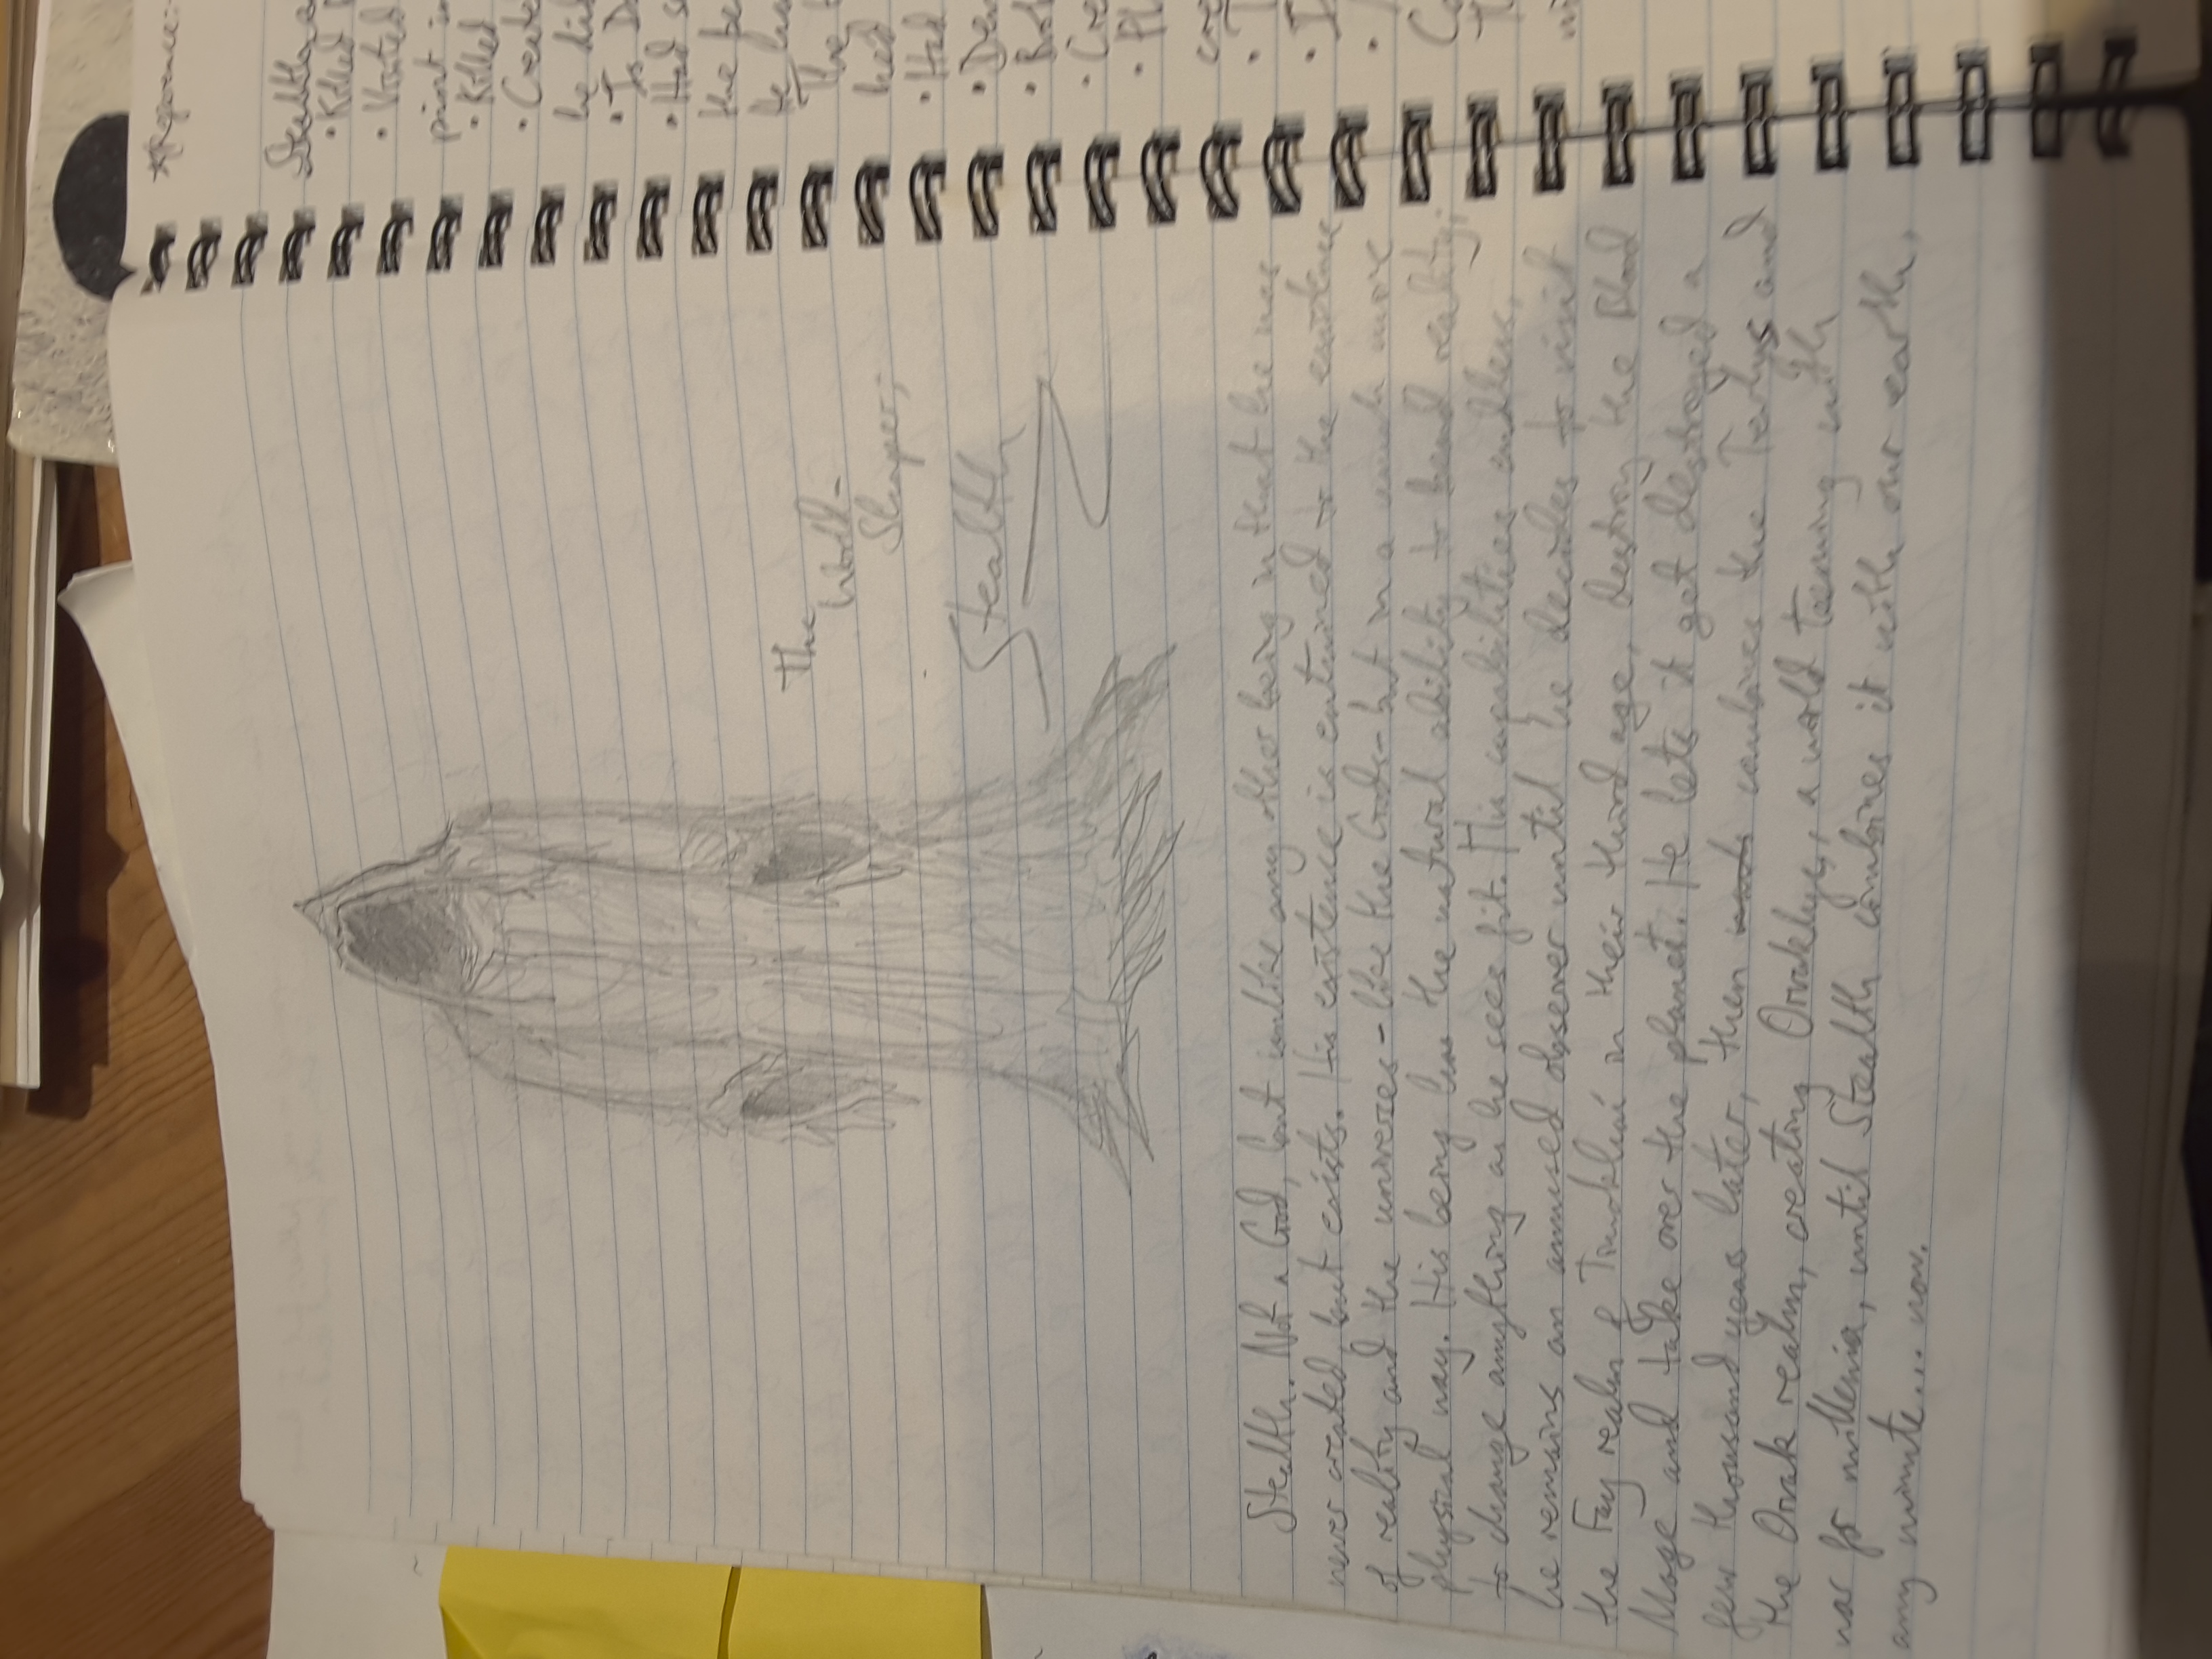 The
World-
Shaper;
Stealth
Stealth. Not a God, but unlike any other being in that he was
never created, but exists. His existence is entwined to the existence
of reality and the universes - like the Gods - but in a much more
physical way. His being has the natural ability to bend reality;
to change anything as he sees fit. His capabilities endless,
he remains an amused observer until he decides to visit
the Fay realm of in their third age, destroy the Blood
Mage and take over the planet. He lets it get destroyed a
few thousand years later, then combines the and
the Orvak realm, creating Orvaklys, a world teeming with
war for millenia, until Stealth combines it with our earth,
any minute... now.
*Reference:
Stealth
• Killed
• Visited
print
• Killed
• Create
he
• Is
• Had
the
he
The
had
• Had
•
•
•
•